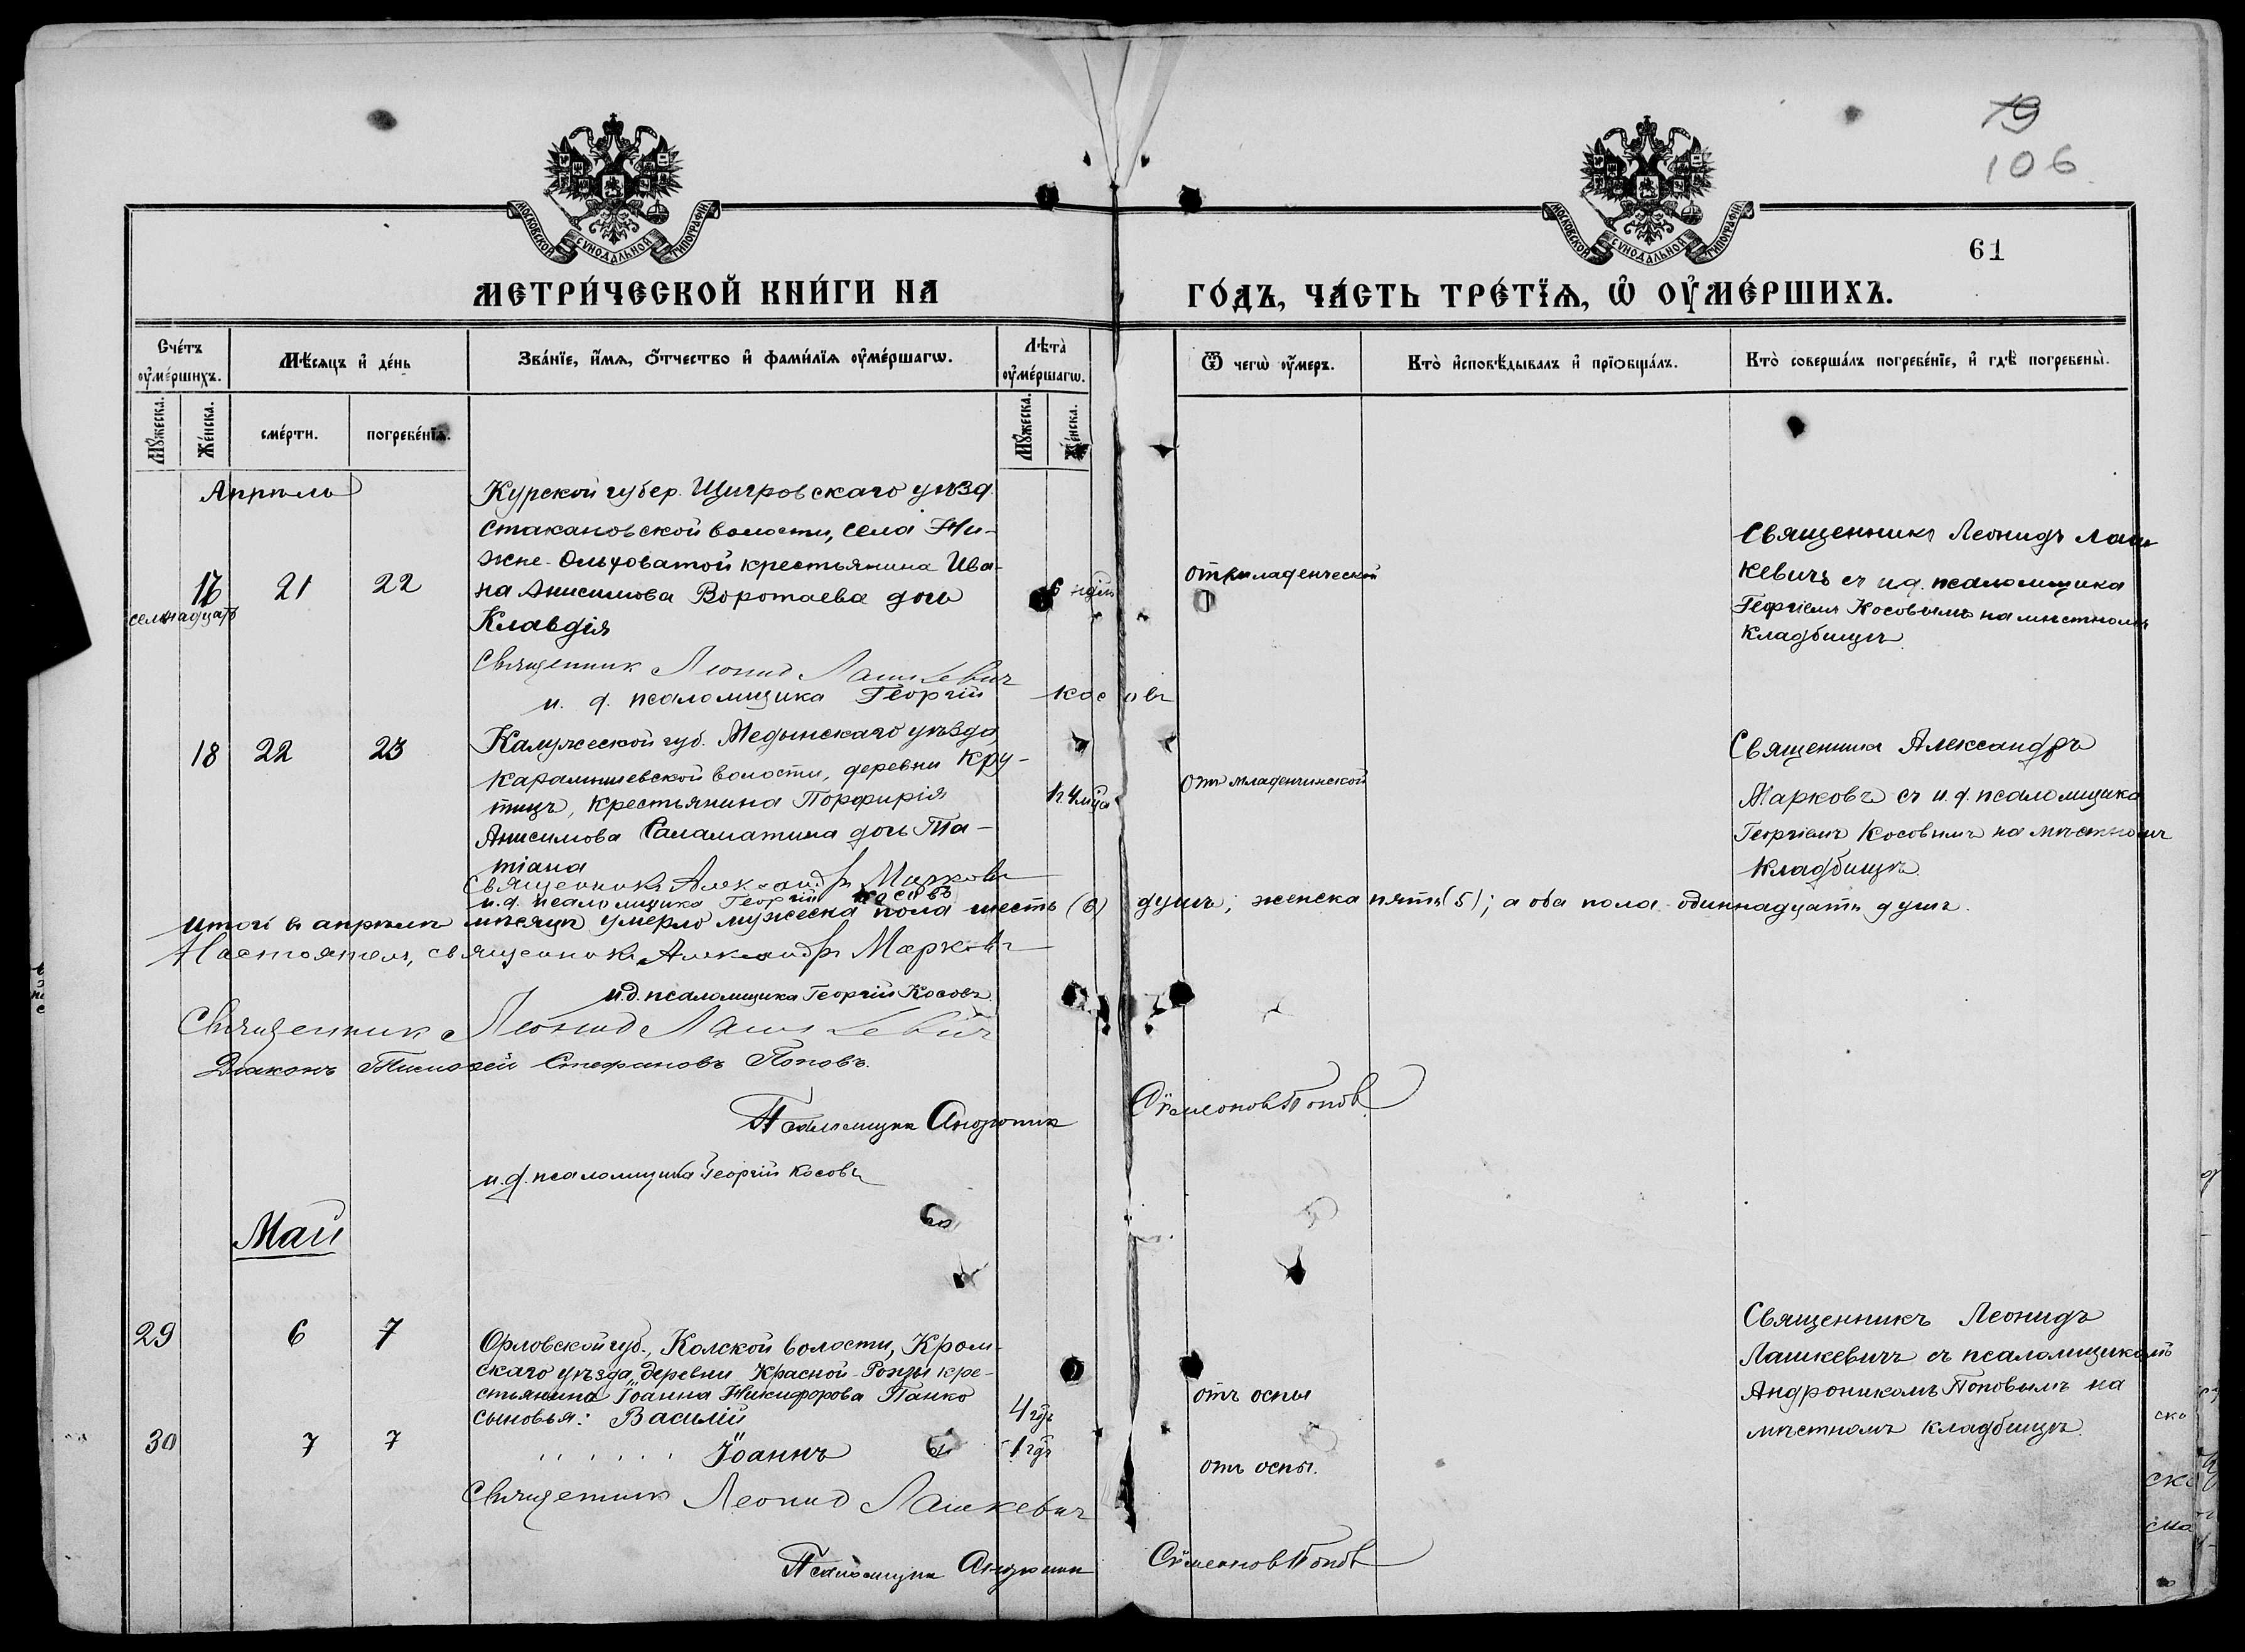 19
106
МОСКОВСКОЙ СѴНОДАЛЬНОЙ ТИПОГРАФІИ
МОСКОВСКОЙ СѴНОДАЛЬНОЙ ТИПОГРАФІИ
61
МЕТРИ́ЧЕСКОЙ КНИ́ГИ НА ГО́ДЪ, ЧА́СТЬ ТРЕ́ТЇѦ, Ѡ҆ ОУ҆МЕ́РШИХЪ.
Сче́тъ оу҆ме́ршихъ.
Мѣ́сѧцъ и҆ де́нь
Зва́нїе, и҆́мѧ, ѻ҆́тчество и҆ фами́лїѧ оу҆ме́ршагѡ.
Лѣта̀ оу҆ме́ршагѡ.
Ѿ чегѡ̀ оу҆́меръ.
Кто̀ и҆сповѣ́дывалъ и҆ прїѡбща́лъ.
Кто̀ соверша́лъ погребе́нїе, и҆ гдѣ̀ погребены̀.
Мꙋ́жеска.
Же́нска.
сме́рти.
погребе́нїѧ.
Мꙋ́жеска.
Же́нска.
Апрѣль
Курской губер. Щигровскаго уѣзд.
Стакановской волости, села Ни-
жне-Ольховатой крестьянина Ива-
17 21 22 на Анисимова Воротаева дочь 6 ндѣль отъ младенческой
семнадцать
Клавдія
Священникъ Леонидъ Лаш
кевичъ съ и.д. псаломщика
Георгіемъ Косовымъ на мѣстномъ
кладбищѣ.
Священник Леонид Лашкевич
и. д. псаломщика Георгій Косовъ
18 22 23 Калужской губ. Медынскаго уѣзда,
Карамышевской волости, деревни Кру-
тицъ, крестьянина Порфирія
Анисимова Саламатина дочь Та-
тіана
отъ младенчинской
Священника Александръ
Марковъ съ и.д. псаломщика
Георгіемъ Косовымъ на мѣстномъ
кладбищѣ
Священникъ Александръ Марковъ
и.д. псаломщика Георгій Косовъ
Итого въ апрѣлѣ мѣсяцѣ умерло мужеска пола шесть (6) душъ; женска пять (5); а оба пола одиннадцать душъ.
Настоятель, священникъ Александръ Марковъ
и.д. псаломщика Георгій Косовъ
Священник Леонид Лашкевич
Діаконъ Тимофей Стефановъ Поповъ.
Псаломщик Андроник Симеонов Попов
и.д. псаломщика Георгій Косовъ
Май
29 6 7 Орловской губ., Колской волости, Кром-
скаго уѣзда, деревни Красной-Рощи кре-
стьянина Іоанна Никифорова Панко
сыновья: Василій 4 гдъ отъ оспы
Священникъ Леонидъ
Лашкевичъ съ псаломщикомъ
Андроникомъ Поповымъ на
мѣстномъ кладбищѣ.
30 7 7 " " " " " Іоаннъ 1 гдъ отъ оспы.
Священник Леонид Лашкевич
Псаломщик Андроник Симеонов Попов